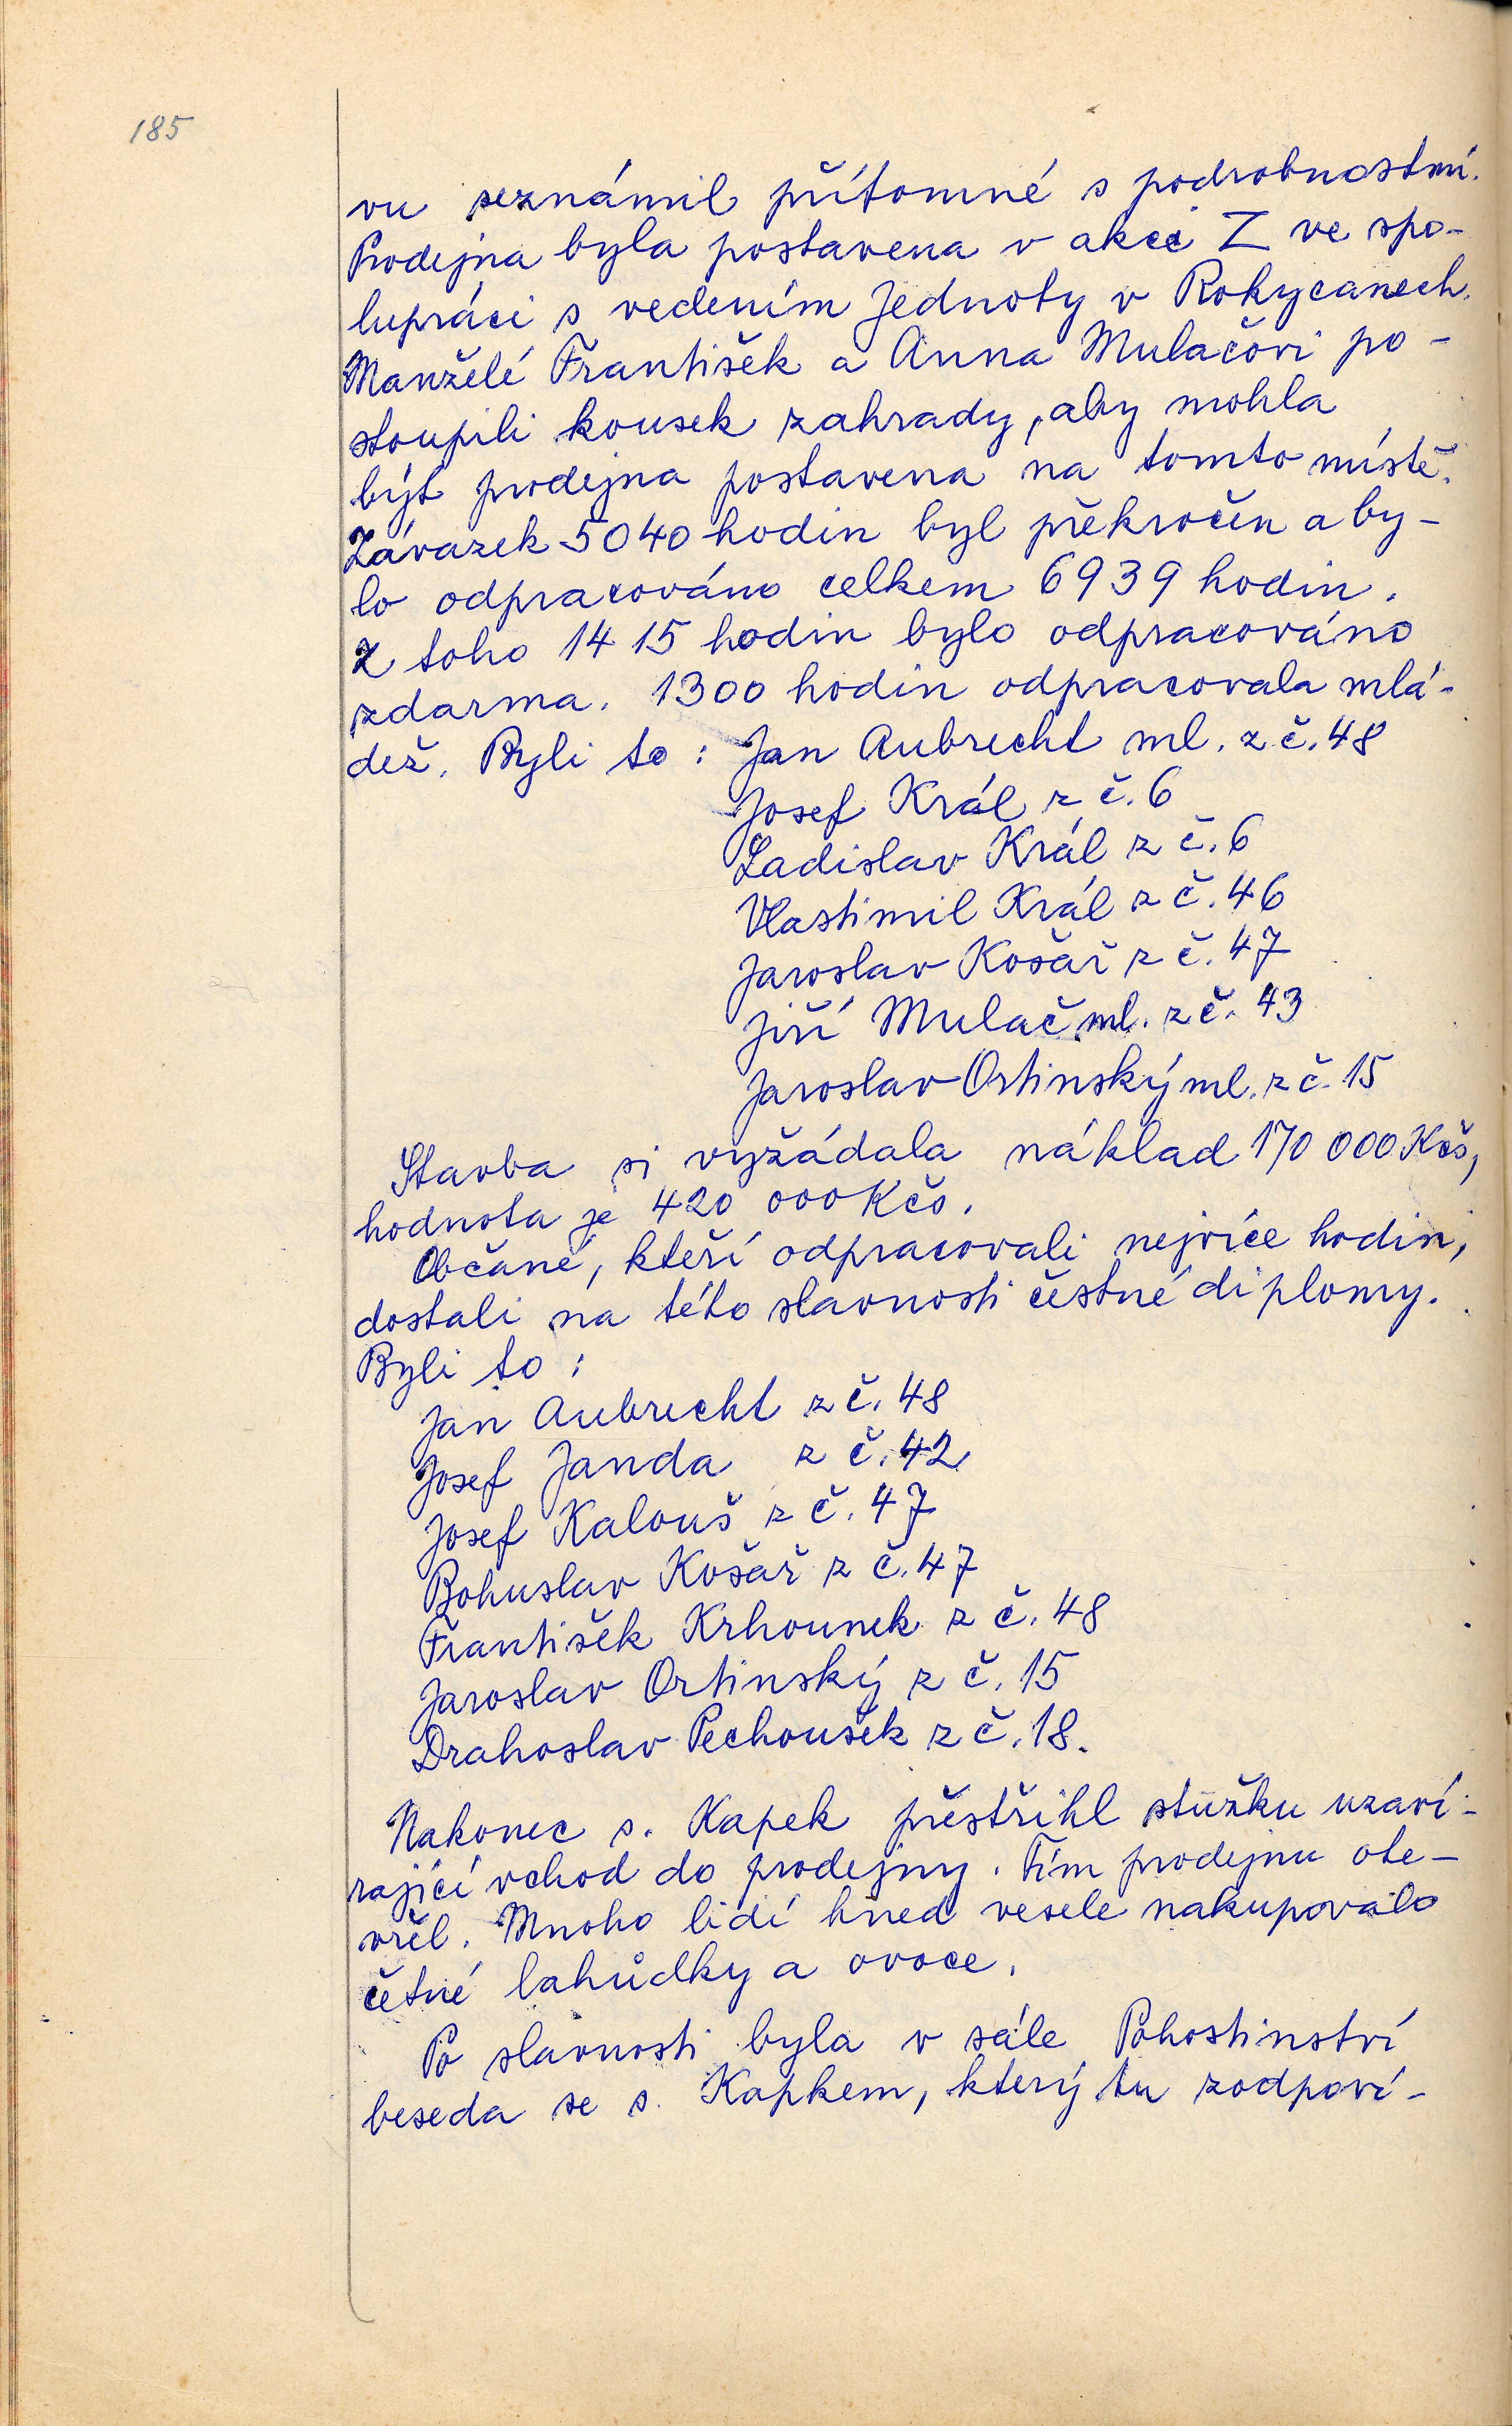 185
vu seznámil přítomné s podrobnostmi.
Prodejna byla postavena v akci Z ve spo-
lupráci s vedením Jednoty v Rokycanech.
Manželé František a Anna Mulačovi po-
stoupili kousek zahrady, aby mohla
být prodejna postavena na tomto místě.
Závazek 5040 hodin byl překročen a by-
lo odpracováno celkem 6939 hodin.
Z toho 1415 hodin bylo odpracováno
zdarma. 1300 hodin odpracovala mlá-
dež. Byli to: Jan Aubrecht ml. z č. 48
Josef Král z č. 6
Ladislav Král z č. 6
Vlastimil Král z č. 46
Jaroslav Košař z č. 47
Jiří Mulač ml. z č. 43
Jaroslav Ortinský ml. z č. 15
Stavba si vyžádala náklad 170 000 Kčs,
hodnota je 420 000 Kčs.
Občané, kteří odpracovali nejvíce hodin,
dostali na této slavnosti čestné diplomy.
Byli to:
Jan Aubrecht z č. 48
Josef Janda z č. 42
Josef Kalouš z č. 47
Bohuslav Košař z č. 47
František Krhounek z č. 48
Jaroslav Ortinský z č. 15
Drahoslav Pechoušek z č. 18.
Nakonec s. Kapek přestřihl stužku uzaví-
rající vchod do prodejny. Tím prodejnu ote-
vřel. Mnoho lidí hned vesele nakupovalo
četné lahůdky a ovoce.
Po slavnosti byla v sále Pohostinství
beseda se s. Kapkem, který tu zodpoví-